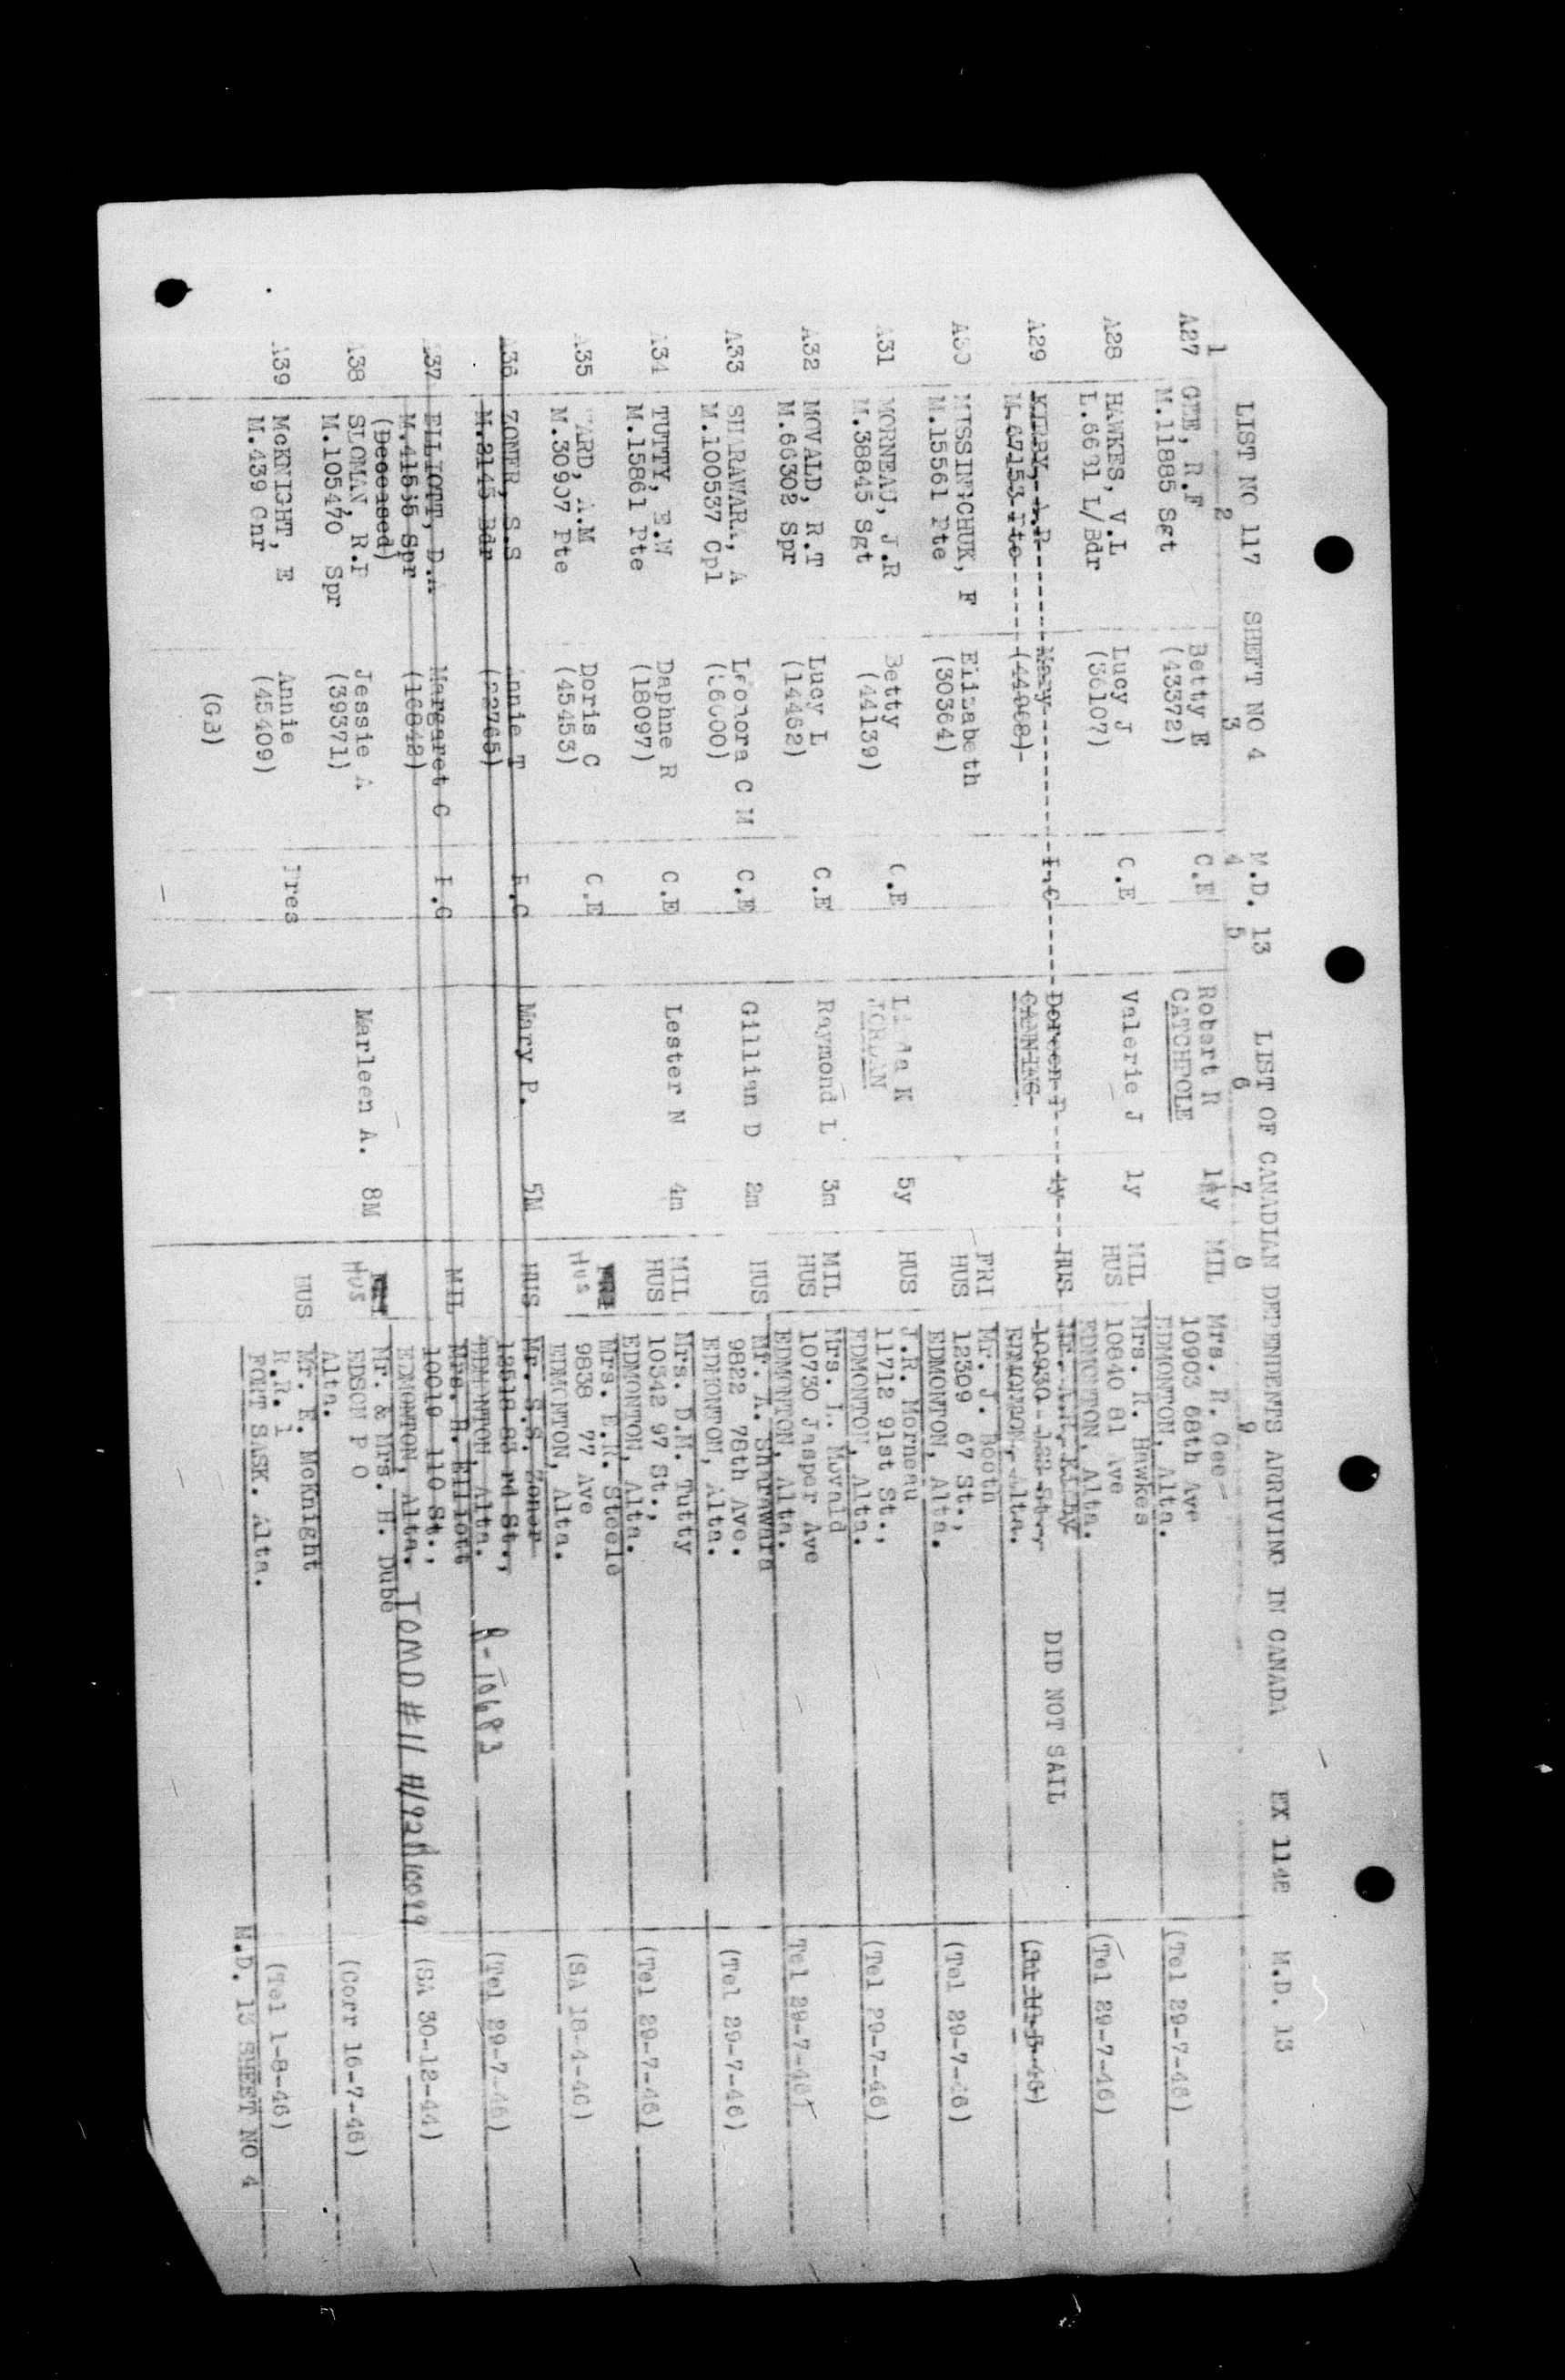 LIST NO 117 SHEET NO 4 M.D. 13 LIST OF CANADIAN DEPENDENTS ARRIVING IN CANADA EX 114 M.D. 13
1 2 3 4 5 6 7 8 9
A27 GEE, R.F Betty E C.E Robert R MIL Mrs. R. Gee
M.11885 Sgt (43372) CATCHPOLE 10903 88th Ave
EDMONTON, Alta. (Tel 29-7-46)
A28 HAWKES, V.L Lucy J C.E Valerie J 1y MIL Mrs. R. Hawkes
L.6631 L/Bdr (36107) HUS 10840 81 Ave
EDMONTON, Alta. (Tel 29-7-46)
A29 KIRBY, A.R Mary F.C Doreen P 4y HUS Mr. A.R. Kirby
M.67153 Pte (44068) CANNING 10930 123 St., DID NOT SAIL
EDMONTON, Alta.
A30 MISSINCHUK, F Elizabeth FRI Mr. J. Booth
M.15561 Pte (30364) HUS 12309 67 St.,
EDMONTON, Alta. (Tel 29-7-46)
A31 MORNEAU, J.R Betty C.E K 5y HUS J.R. Morneau
M.38845 Sgt (44139) JORDAN 11712 91st St.,
EDMONTON, Alta. (Tel 29-7-46)
A32 MOVALD, R.T Lucy L C.E Raymond L 3m MIL Mrs. L. Movald
M.66302 Spr (14462) HUS 10730 Jasper Ave
EDMONTON, Alta. Tel 29-7-46)
A33 SHARAWARA, A Leonora C M C.E Gillian D 2m HUS Mr. A. Sharawara
M.100537 Cpl 9822 78th Ave.
EDMONTON, Alta. (Tel 29-7-46)
A34 TUTTY, E.W Daphne R C.E Lester N 4m MIL Mrs. D.M. Tutty
M.15861 Pte (18097) HUS 10542 97 St.,
EDMONTON, Alta. (Tel 29-7-46)
A35 WARD, A.M Doris C C.E FRI Mrs. E.R. Steele
M.30907 Pte (45453) HUS 9838 77 Ave
EDMONTON, Alta. (SA 18-4-46)
A36 ZONER, S.S Annie T F.C Mary P. 5M HUS Mr. S.S. Zoner
M.2145 Bdr (22765) 12518 83 rd St.,
EDMONTON, Alta. A-10683 (Tel 29-7-46)
A37 ELLIOTT, D.A Margaret C F.C MIL Mrs. H. Elliott
M.41535 Spr (16842) 10019 110 St.,
(Deceased) EDMONTON, Alta. TOMD #11 (SA 30-12-44)
A38 SLOMAN, R.P Jessie A Marleen A. 8M FRI Mr. & Mrs. H. Dube
M.105470 Spr (39371) HUS EDSON P O
Alta. (Corr 16-7-46)
A39 McKNIGHT, E Annie Pres HUS Mr. E. McKnight
M.439 Gnr (45409) R.R. 1
(GB) FORT SASK. Alta. (Tel 1-8-46)
M.D. 13 SHEET NO 4